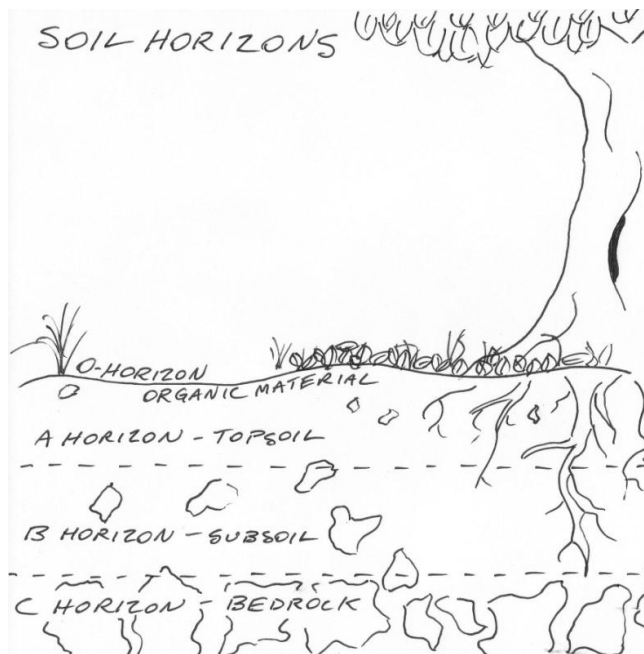 SOIL HORIZONS
O-HORIZON
ORGANIC MATERIAL
A HORIZON - TOPSOIL
B HORIZON - SUBSOIL
C HORIZON - BEDROCK